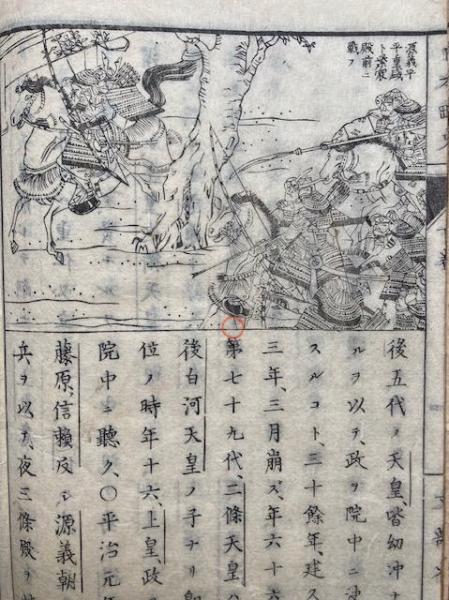 源義平
平重盛
ト紫宸
殿前ニ
戰フ
後五代ノ天皇、皆幼冲ナ
ルヲ以テ、政ヲ院中ニ
スルコト、三十餘年、建久
三年、三月崩ズ、年六十六
第七十九代、二條天皇ハ
後白河天皇ノ子ナリ
位ノ時年十六、上皇、政
院中ニ聽ク、〇平治元
藤原、信賴反シ源義朝
兵ヲ以テ、夜三條殿ヲ